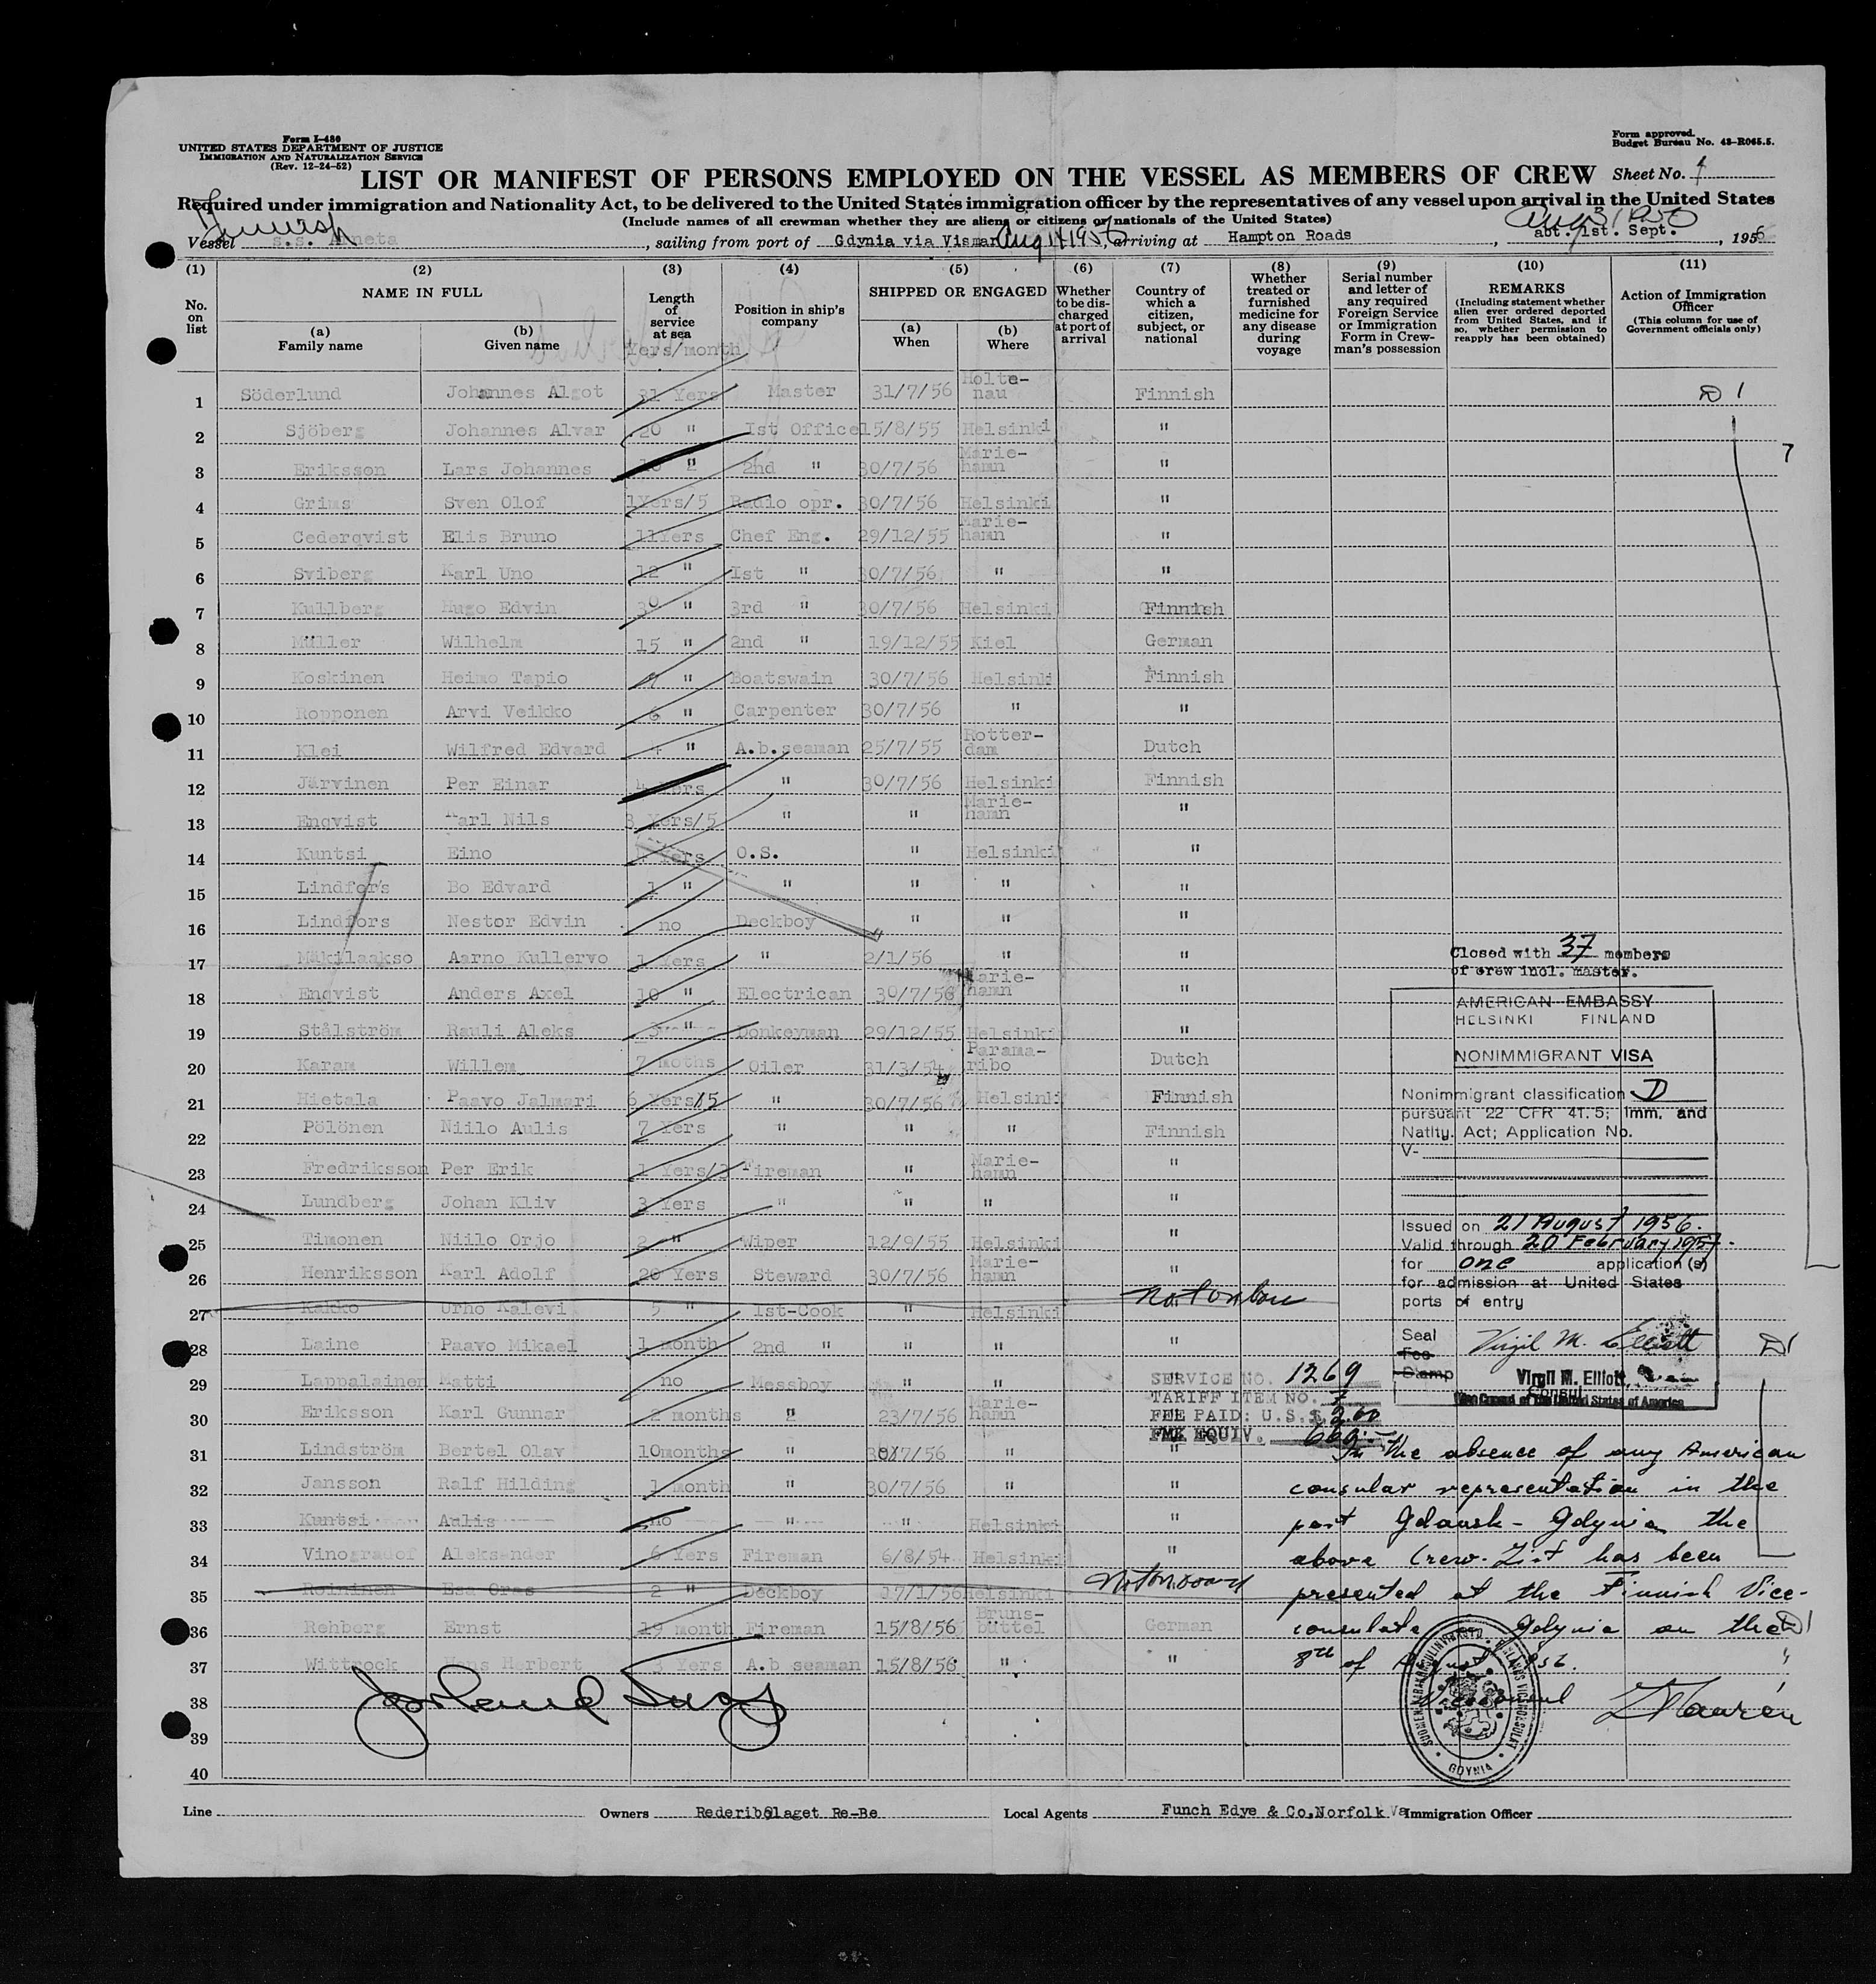 Form I-480
UNITED STATES DEPARTMENT OF JUSTICE
IMMIGRATION AND NATURALIZATION SERVICE
(Rev. 12-24-52)
Form approved.
Budget Bureau No. 43-R065.5.
LIST OR MANIFEST OF PERSONS EMPLOYED ON THE VESSEL AS MEMBERS OF CREW Sheet No. 1
Required under immigration and Nationality Act, to be delivered to the United States immigration officer by the representatives of any vessel upon arrival in the United States
(Include names of all crewman whether they are aliens or citizens or nationals of the United States)
Finnish
Aug 31 1956
Vessel s.s. Agneta, sailing from port of Gdynia via Vismar Aug 14 1956, arriving at Hampton Roads, abt. 1st. Sept., 1956
(1) (2) (3) (4) (5) (6) (7) (8) (9) (10) (11)
No. on list
NAME IN FULL
(a) Family name
(b) Given name
Length of service at sea
Yers/month
Position in ship's company
SHIPPED OR ENGAGED
(a) When
(b) Where
Whether to be discharged at port of arrival
Country of which a citizen, subject, or national
Whether treated or furnished medicine for any disease during voyage
Serial number and letter of any required Foreign Service or Immigration Form in Crewman's possession
REMARKS
(Including statement whether alien ever ordered deported from United States, and if so, whether permission to reapply has been obtained)
Action of Immigration Officer
(This column for use of Government officials only)
1 Söderlund Johannes Algot 31 Yers Master 31/7/56 Holtenau Finnish D 1
2 Sjöberg Johannes Alvar 20 " Ist Office 15/8/55 Helsinki "
3 Eriksson Lars Johannes 10 " 2nd " 30/7/56 Mariehamn " 7
4 Grims Sven Olof 1Yers/5 Radio opr. 30/7/56 Helsinki "
5 Cederqvist Elis Bruno 11Yers Chef Eng. 29/12/55 Mariehamn "
6 Sviberg Karl Uno 12 " Ist " 30/7/56 " "
7 Kullberg Hugo Edvin 30 " 3rd " 30/7/56 Helsinki Finnish
8 Müller Wilhelm 15 " 2nd " 19/12/55 Kiel German
9 Koskinen Heimo Tapio 7 " Boatswain 30/7/56 Helsinki Finnish
10 Ropponen Arvi Veikko 6 " Carpenter 30/7/56 " "
11 Klei Wilfred Edvard 4 " A.b.seaman 25/7/55 Rotterdam Dutch
12 Järvinen Per Einar 4 Yers " 30/7/56 Helsinki Finnish
13 Enqvist Karl Nils 3 Yers/5 " " Mariehamn "
14 Kuntsi Eino Yers O.S. " Helsinki "
15 Lindfors Bo Edvard 1 " " " " "
16 Lindfors Nestor Edvin no Deckboy " " "
17 Mäkilaakso Aarno Kullervo 1 Yers " 2/1/56 " "
18 Enqvist Anders Axel 10 " Electrican 30/7/56 Mariehamn "
19 Stålström Rauli Aleks 3 " Donkeyman 29/12/55 Helsinki "
20 Karam Willem 7 moths Oiler 31/3/54 Paramaribo Dutch
21 Hietala Paavo Jalmari 6 Yers/5 " 30/7/56 Helsinki Finnish
22 Pölönen Niilo Aulis 7 Yers " " " Finnish
23 Fredriksson Per Erik 1 Yers/3 Fireman " Mariehamn "
24 Lundberg Johan Kliv 3 Yers " " " "
25 Timonen Niilo Orjo 2 " Wiper 12/9/55 Helsinki "
26 Henriksson Karl Adolf 20 Yers Steward 30/7/56 Mariehamn "
27 Kakko Urho Kalevi 5 " 1st-Cook " Helsinki Not on board
28 Laine Paavo Mikael 1 month 2nd " " " " D1
29 Lappalainen Matti no Messboy " " "
30 Eriksson Karl Gunnar 2 months " 23/7/56 Mariehamn
31 Lindström Bertel Olav 10months " 30/7/56 " "
32 Jansson Ralf Hilding 1 month " 30/7/56 " "
33 Kuntsi Aulis no " " Helsinki "
34 Vinogradof Aleksander 6 Yers Fireman 6/8/54 Helsinki "
35 Roininen Esa Oras 2 " Deckboy 17/1/56 Helsinki Not on board
36 Rehberg Ernst 19 month Fireman 15/8/56 Brunsbüttel German D1
37 Wittrock Hans Herbert 3 Yers A.b seaman 15/8/56 " " "
38
39
40
Closed with 37 members
of crew incl. master.
AMERICAN EMBASSY
HELSINKI FINLAND
NONIMMIGRANT VISA
Nonimmigrant classification D
pursuant 22 CFR 41.5; Imm. and
Natlty. Act; Application No.
V-
Issued on 21 August 1956.
Valid through 20 February 1957.
for one application(s)
for admission at United States
ports of entry
Seal
Fee
Stamp
Virgil M. Elliott
Virgil M. Elliott,
Consul
Vice Consul of the United States of America
SERVICE NO. 1269
TARIFF ITEM NO. 7
FEE PAID: U.S.$ 2.00
FMK EQUIV. 669.-
In the absence of any American
consular representation in the
port Gdansk - Gdynia the
above Crew-List has been
presented at the Finnish Vice-
consulate Gdynia on the
8th of August 1956.
Vice Consul
SUOMEN VARAKONSULINVIRASTO
FINLANDS VICEKONSULAT
GDYNIA
Line Owners Rederibolaget Re-Be Local Agents Funch Edye & Co,Norfolk Va Immigration Officer